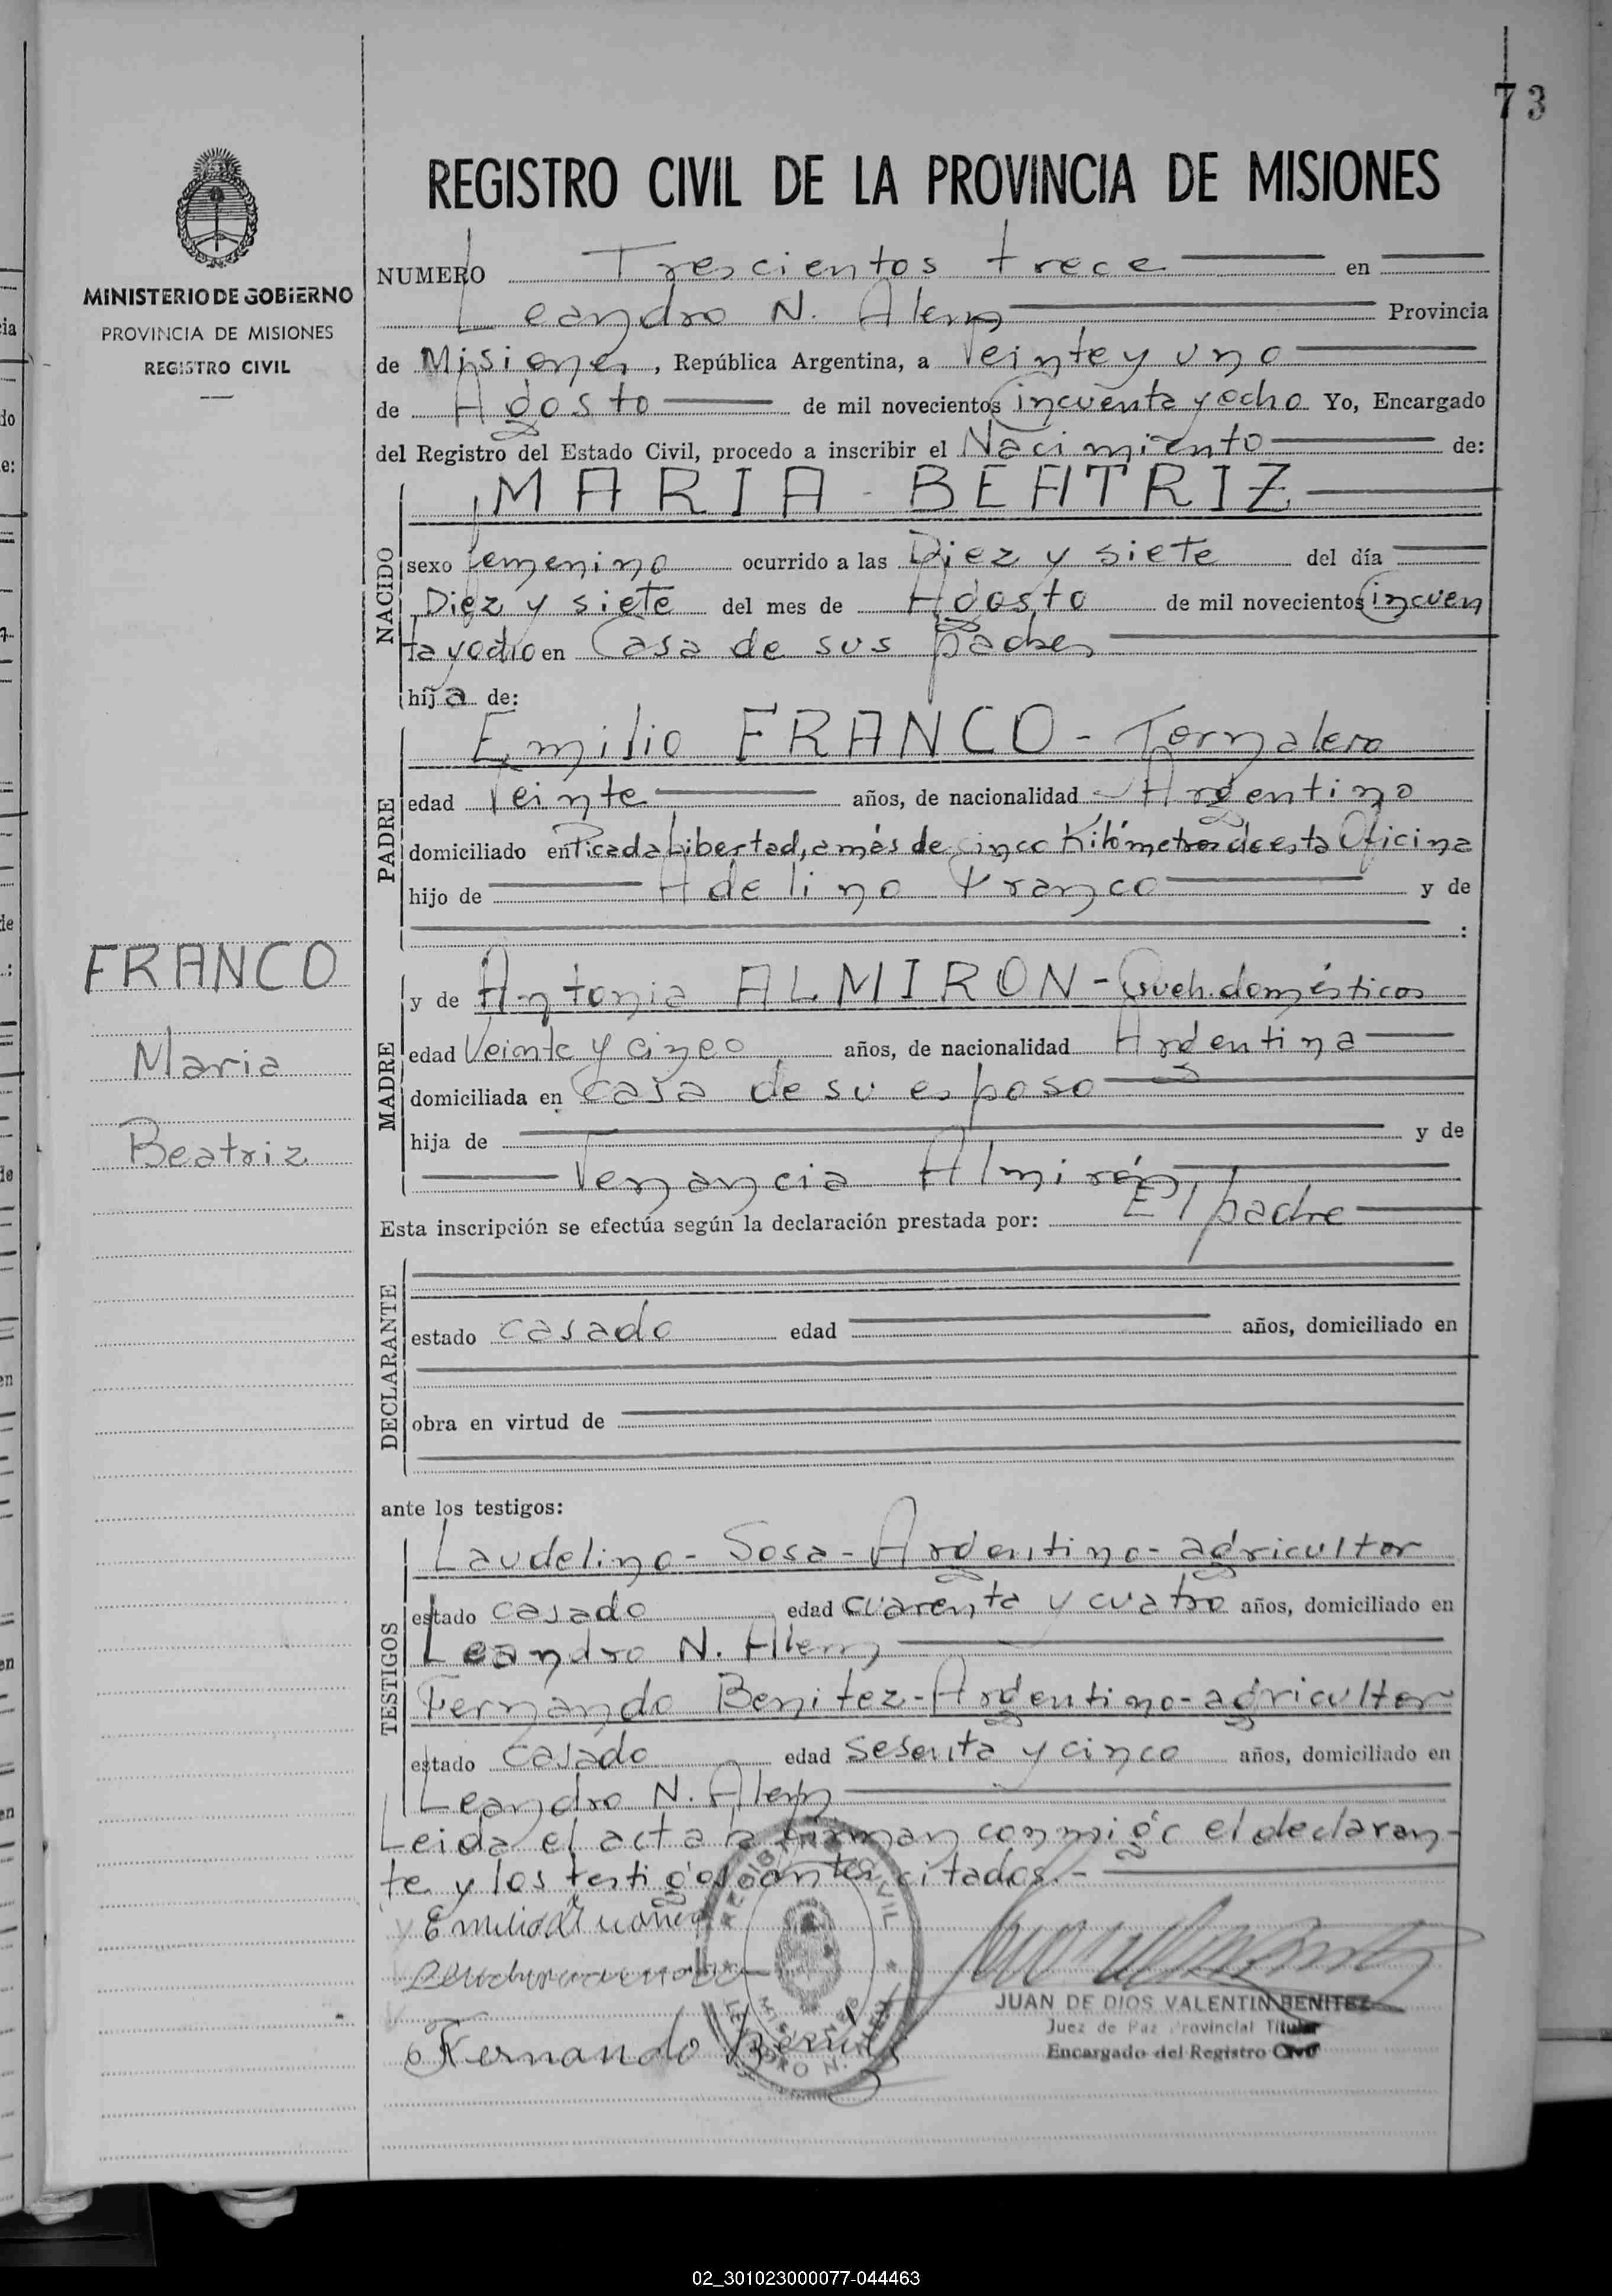 73
REGISTRO CIVIL DE LA PROVINCIA DE MISIONES
MINISTERIO DE GOBIERNO
PROVINCIA DE MISIONES
REGISTRO CIVIL
FRANCO
Maria
Beatriz
NUMERO Trescientos trece en
Leandro N. Alem Provincia
de Misiones, República Argentina, a Veinte y uno
de Agosto de mil novecientos Cincuenta y ocho Yo, Encargado
del Registro del Estado Civil, procedo a inscribir el Nacimiento de:
NACIDO
MARIA - BEATRIZ
sexo femenino ocurrido a las Diez y siete del día
Diez y siete del mes de Agosto de mil novecientos Cincuen
ta y ocho en Casa de sus padres
hija de:
PADRE
Emilio FRANCO - Jornalero
edad Veinte años, de nacionalidad Argentino
domiciliado en Picada Libertad, a más de cinco Kilómetros de esta Oficina
hijo de Adelino Franco y de
:
MADRE
y de Antonia ALMIRON - Queh. domésticos
edad Veinte y cinco años, de nacionalidad Argentina
domiciliada en casa de su esposo
hija de y de
Venancia Almirón
Esta inscripción se efectúa según la declaración prestada por: El padre
DECLARANTE
estado casado edad años, domiciliado en
obra en virtud de
ante los testigos:
TESTIGOS
Laudelino - Sosa - Argentino - agricultor
estado casado edad cuarenta y cuatro años, domiciliado en
Leandro N. Alem
Fernando Benitez - Argentino - agricultor
estado casado edad sesenta y cinco años, domiciliado en
Leandro N. Alem
Leida el acta la firman conmigo el declaran-
te y los testigos antes citados.-
Emilio Franco
Fernando Benitez
REGISTRO CIVIL
MISIONES
LEANDRO N. ALEM
JUAN DE DIOS VALENTIN BENITEZ
Juez de Paz Provincial Titular
Encargado del Registro Civil
02_301023000077-044463